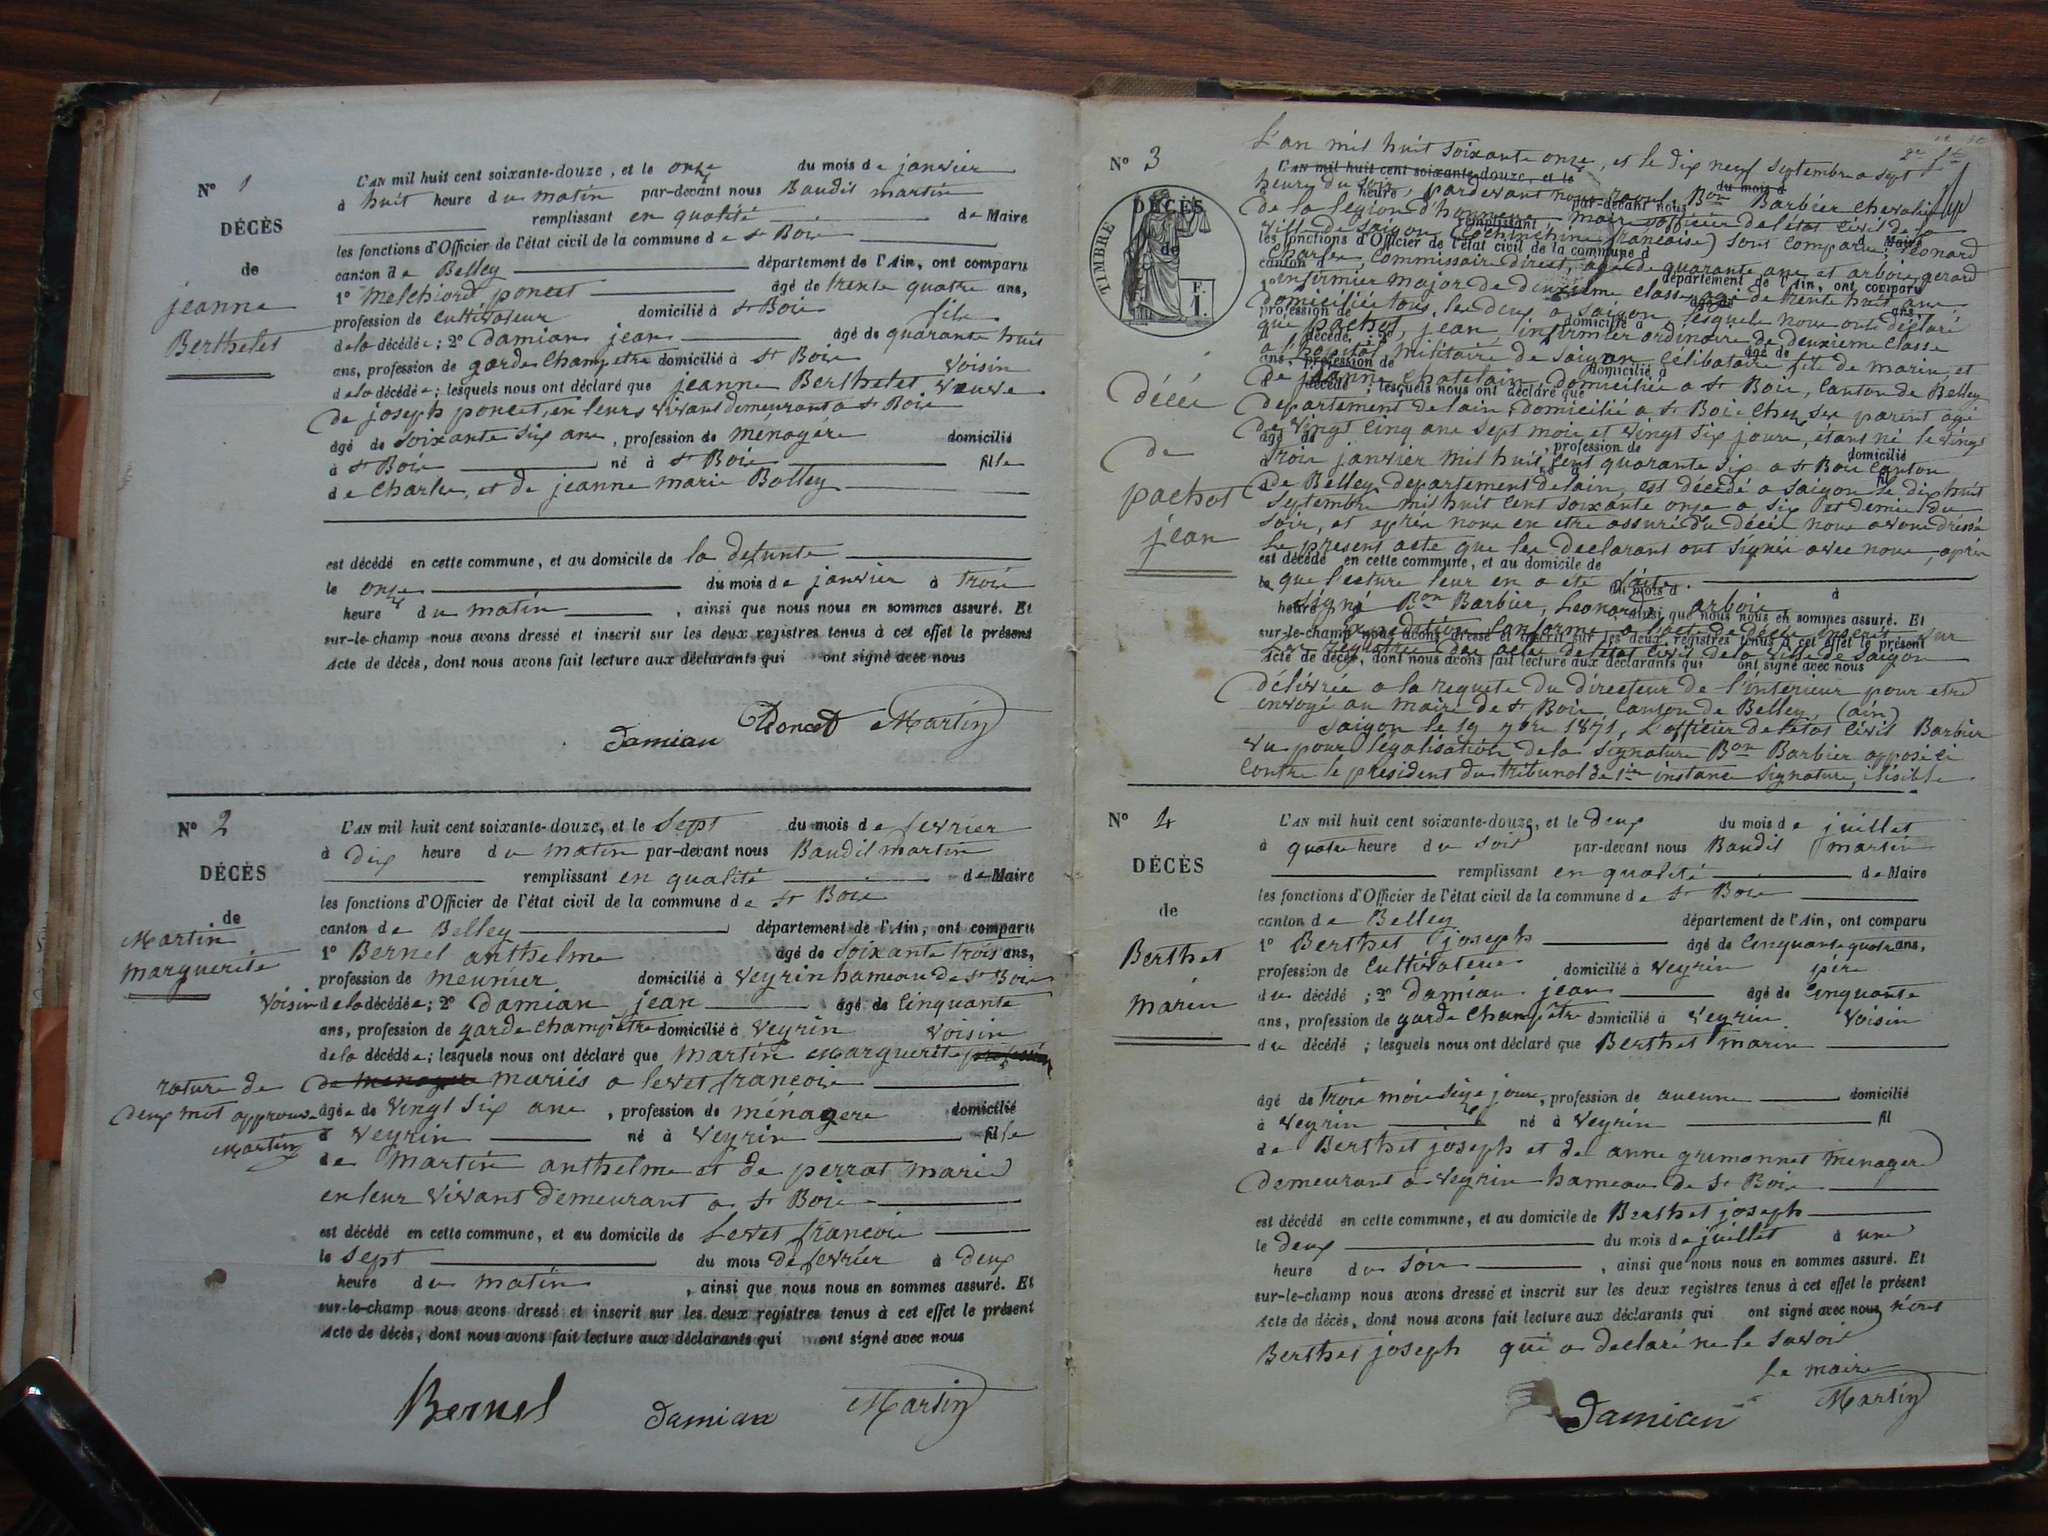 N° 1
DÉCÈS
de
jeanne
Berthelet
L'AN mil huit cent soixante-douze, et le onze du mois de janvier
à huit heure du matin par-devant nous Baudit martin
remplissant en qualité de Maire
les fonctions d'Officier de l'état civil de la commune de St Bois
canton de Belley département de l'Ain, ont comparu
1° Melchiord poncet âgé de trente quatre ans,
profession de cultivateur domicilié à St Bois fils
de la décédée; 2° Damian jean âgé de quarante huit
ans, profession de garde champetre domicilié à St Bois voisin
de la décédée; lesquels nous ont déclaré que jeanne Berthelet veuve
de joseph poncet, en leurs vivant demeurant a St Bois
âgé de soixante six ans, profession de ménagère domicilié
à St Bois né à St Bois fille
de Charles, et de jeanne marie Bolley
est décédé en cette commune, et au domicile de la defunte
le onze du mois de janvier à trois
heure du matin, ainsi que nous nous en sommes assuré. Et
sur-le-champ nous avons dressé et inscrit sur les deux registres tenus à cet effet le présent
Acte de décès, dont nous avons fait lecture aux déclarants qui ont signé avec nous
Damian Poncet Martin
N° 2
DÉCÈS
de
Martin
marguerite
L'AN mil huit cent soixante-douze, et le sept du mois de fevrier
à dix heure du matin par-devant nous Baudit martin
remplissant en qualité de Maire
les fonctions d'Officier de l'état civil de la commune de St Bois
canton de Belley département de l'Ain, ont comparu
1° Bernel anthelme âgé de soixante trois ans,
profession de meunier domicilié à Veyrin hameau de St Bois
voisin de la décédée; 2° Damian jean âgé de cinquante
ans, profession de garde champêtre domicilié à Veyrin voisin
de la décédée; lesquels nous ont déclaré que Martin Marguerite profession
de menagere mariés a Levet francois
rature de
deux mot approuve
Martin
âgée de vingt six ans, profession de ménagere domicilié
à Veyrin né à Veyrin fille
de Martin anthelme et de perrat marie
en leur vivant demeurant a St Bois
est décédé en cette commune, et au domicile de Levet francois
le sept du mois de fevrier à deux
heure du matin, ainsi que nous nous en sommes assuré. Et
sur-le-champ nous avons dressé et inscrit sur les deux registres tenus à cet effet le présent
Acte de décès, dont nous avons fait lecture aux déclarants qui ont signé avec nous
Bernel Damian Martin
N° 3
DÉCÈS
de
TIMBRE
F.
1.
décés
de
pachot
jean
L'an mil huit soixante onze, et le dix neuf septembre a sept
L'AN mil huit cent soixante-douze, et le du mois d
heures du soir, pardevant nous Bon Barbier chevalier
de la légion d'honneur maire officier de l'état civil de la
ville de Saigon (Cochinchine francaise) sont comparu, Léonard
Charles, commissaire direct, agé de quarante ans et arbois gerard
infirmier major de deuxieme classe agé de trente huit ans
domiciliés tous les deux a Saigon, lesquels nous ont déclaré
que pachot, jean, infirmier ordinaire de deuxieme classe
a l'hopital militaire de Saigon, célibataire fils de marin, et
de jeanne Chatelain, domiciliée a St Bois, canton de Belley
departement de lain, domicilié a St Bois chez ses parent agé
de vingt cinq ans sept mois et vingt six jours, étant né le vingt
trois janvier mil huit cent quarante six a St Bois canton
de Belley departement de lain, est décédé a Saigon le dix huit
Septembre mil huit cent soixante onze a six et demie du
soir, et aprés nous en etre assuré du décés nous avons dressé
le present acte que les declarant ont signés avec nous, aprés
que lecture leur en a ete faite.
Signé Bon Barbier, Leonard, arbois
Expedition conforme a l'acte de décés inscrit sur
les registres des actes de l'état civil de la ville de Saigon
délivrée a la requete du directeur de l'interieur pour etre
envoyé au maire de St Bois canton de Belley (ain)
Saigon le 19 7bre 1871, L'officier de l'état civil Barbier
Vu pour légalisation de la signature Bon Barbier apposé ci
contre le president du tribunal de 1ier instance signature, ilisible
N° 4
DÉCÈS
de
Berthet
marin
L'AN mil huit cent soixante-douze, et le deux du mois de juillet
à quatre heure du soir par-devant nous Baudit martin
remplissant en qualité de Maire
les fonctions d'Officier de l'état civil de la commune de St Bois
canton de Belley département de l'Ain, ont comparu
1° Berthet joseph âgé de cinquante quatre ans,
profession de cultivateur domicilié à Veyrin père
du décédé; 2° Damian jean âgé de cinquante
ans, profession de garde champêtre domicilié à Veyrin voisin
du décédé; lesquels nous ont déclaré que Berthet marin
âgé de trois mois seize jours, profession de aucune domicilié
à Veyrin né à Veyrin fil
de Berthet joseph et de anne grimonnet menagere
demeurant a Veyrin hameau de St Bois
est décédé en cette commune, et au domicile de Berthet joseph
le deux du mois de juillet à une
heure du soir, ainsi que nous nous en sommes assuré. Et
sur-le-champ nous avons dressé et inscrit sur les deux registres tenus à cet effet le présent
Acte de décès, dont nous avons fait lecture aux déclarants qui ont signé avec nous non
Berthet joseph qui a declaré ne le savoir
Le maire
Damian Martin